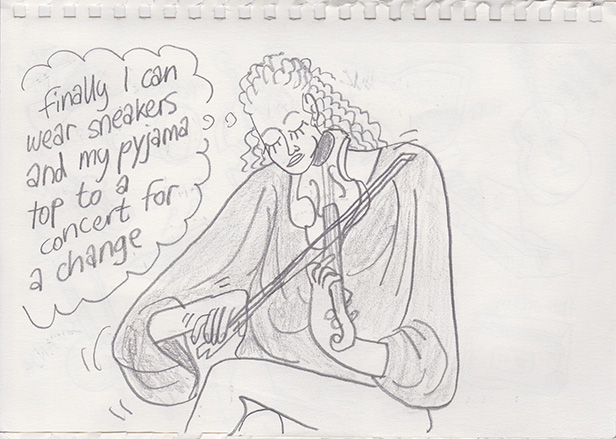 finally I can
wear sneakers
and my pyjama
top to a
concert for
a change